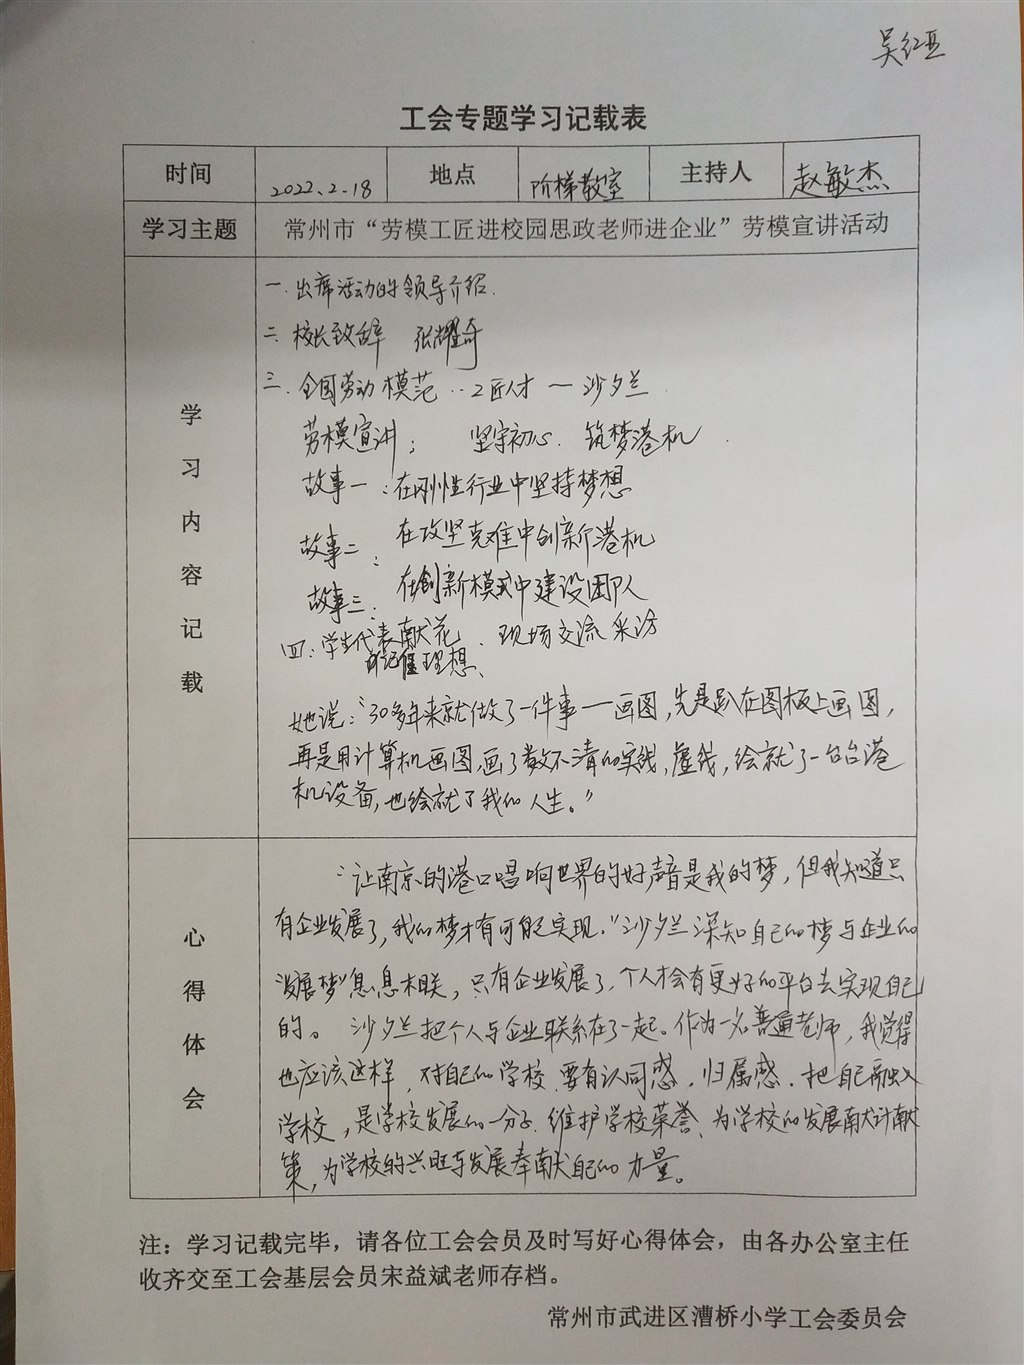 吴红亚
工会专题学习记载表
时间 2022、2-18 地点 阶梯教室 主持人 赵敏杰
学习主题 常州市“劳模工匠进校园思政老师进企业”劳模宣讲活动
学习内容记载
一. 出席活动的领导介绍.
二. 校长致辞 张耀奇
三. 全国劳动模范 ··工匠人才 一 沙夕兰
劳模宣讲； 坚守初心. 筑梦港机
故事一：在刚性行业中坚持梦想
故事二：在攻坚克难中创新港机
故事三：在创新模式中建设团队
四：学生代表献花、现场交流采访
理想、
她说：“30多年来就做了一件事一画图，先是趴在图板上画图，
再是用计算机画图,画了数不清的实线，虚线，绘就了一台台港
机设备，也绘就了我的人生。”
心得体会
“让南京的港口唱响世界的好声音是我的梦，但我知道只
有企业发展了，我的梦才有可能实现.”沙夕兰深知自己的梦与企业的
“发展梦”息息相联，只有企业发展了，个人才会有更好的平台去实现自己
的。 沙夕兰把个人与企业联系在了一起。作为一名普通老师，我觉得
也应该这样，对自己的学校要有认同感，归属感．把自己融入
学校，是学校发展的一分子.维护学校荣誉、为学校的发展献计献
策，为学校的兴旺与发展奉献自己的力量。
注：学习记载完毕，请各位工会会员及时写好心得体会，由各办公室主任
收齐交至工会基层会员宋益斌老师存档。
常州市武进区漕桥小学工会委员会